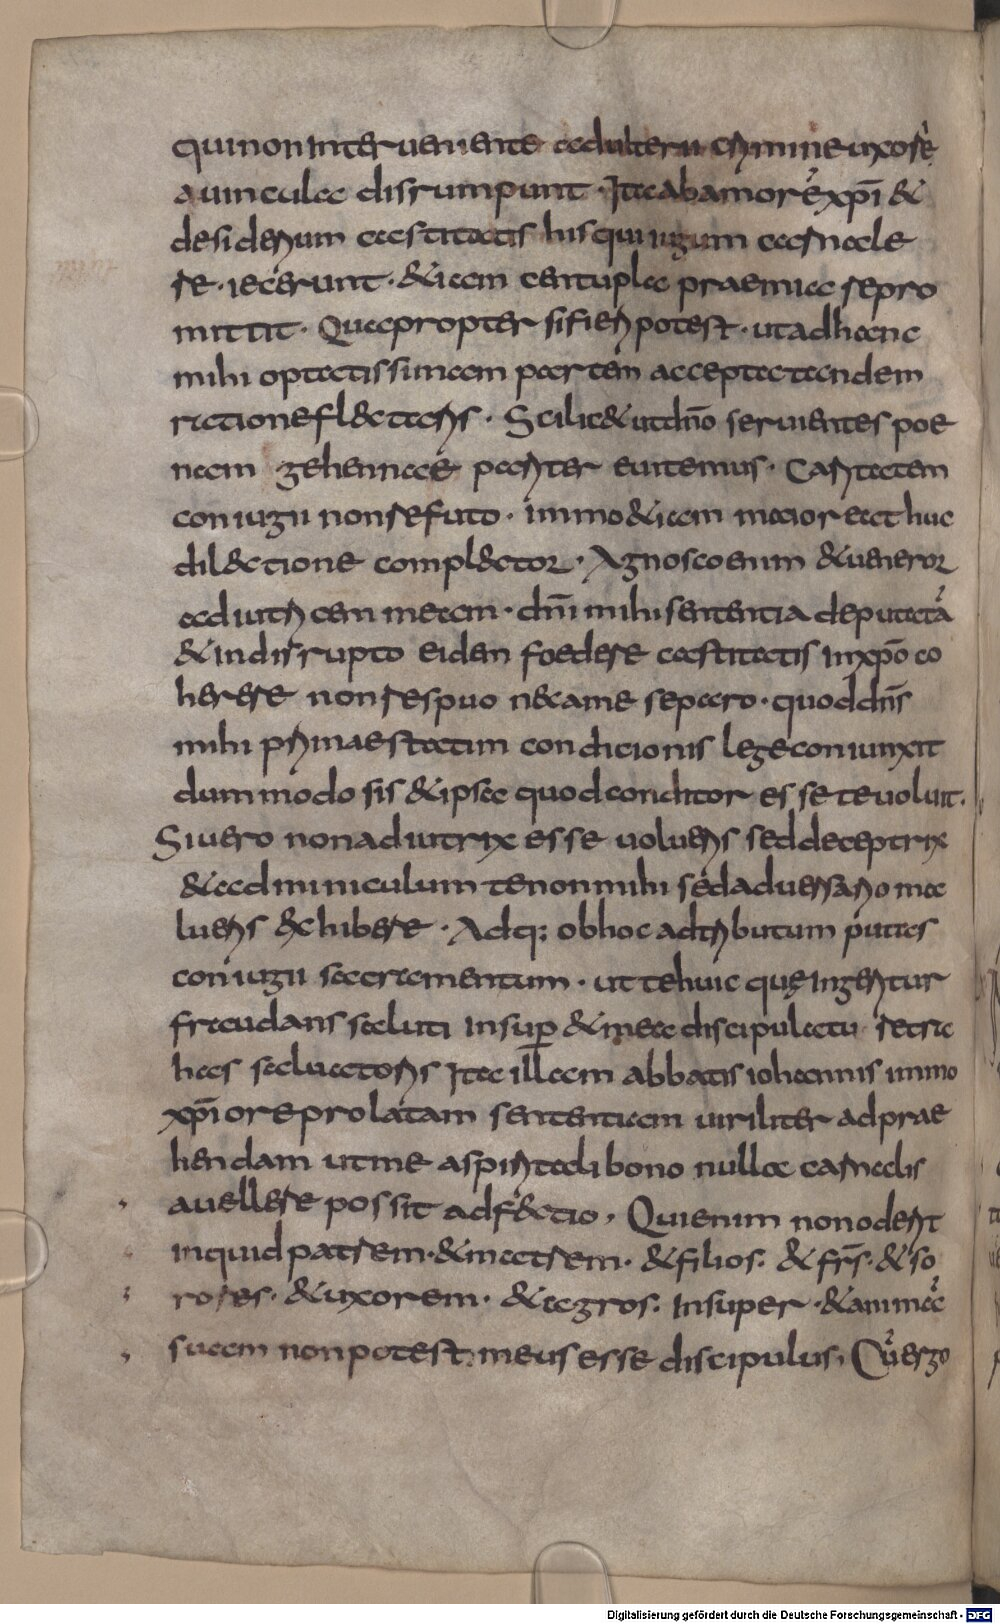 qui non interueniente adulterii crimine uxorē
a uincula disrumpunt · Ita ab amorē xp̄i &
desiderium castitatis his qui iugum carnale
se · iecerunt · & iam centupla praemia se pro
mittit · Quapropter si fieri potest · ut ad hanc
mihi optatissimam partem accepta tandem
ratione fl&taris · Scilic& ut dn̄o seruientes poe
nam gehennae pariter euitemus · Caritatem
coniugii non refuto · immo & iam maiore at huc
dil&tione compl&tor · Agnosco enim & ueneror
adiutricem meam · dn̄i mihi sententia deputatā
& indisrupto eidem foedere castitatis in xp̄o co
herere non respuo nec a me separo · quod dn̄s
mihi primae statim condicionis lege coniunxit
dummodo sis & ipsa quod conditor esse te uoluit ·
Si uero non adiutrix esse uolueris sed deceptrix
& adminiculum te non mihi sed aduersario ma
lueris exhibere · Adq; ob hoc adtributum putes
coniugii sacramentum · ut te huic quę ingeritur
fraudans saluti insup & mea discipulatu retra
has saluatoris Ita illam abbatis iohannis immo
xp̄i ore prolatam sententiam uiriliter adprae
hendam ut me a spiritali bono nulla carnalis
auellere possit adf&tio, Qui enim non oderit
inquid patrem · & matrem · & filios · & fr̄s · & so
rores · & uxorem · & agros · insuper · & animā
suam non potest meus esse discipulus, Cū ergo
Digitalisierung gefördert durch die Deutsche Forschungsgemeinschaft - DFG